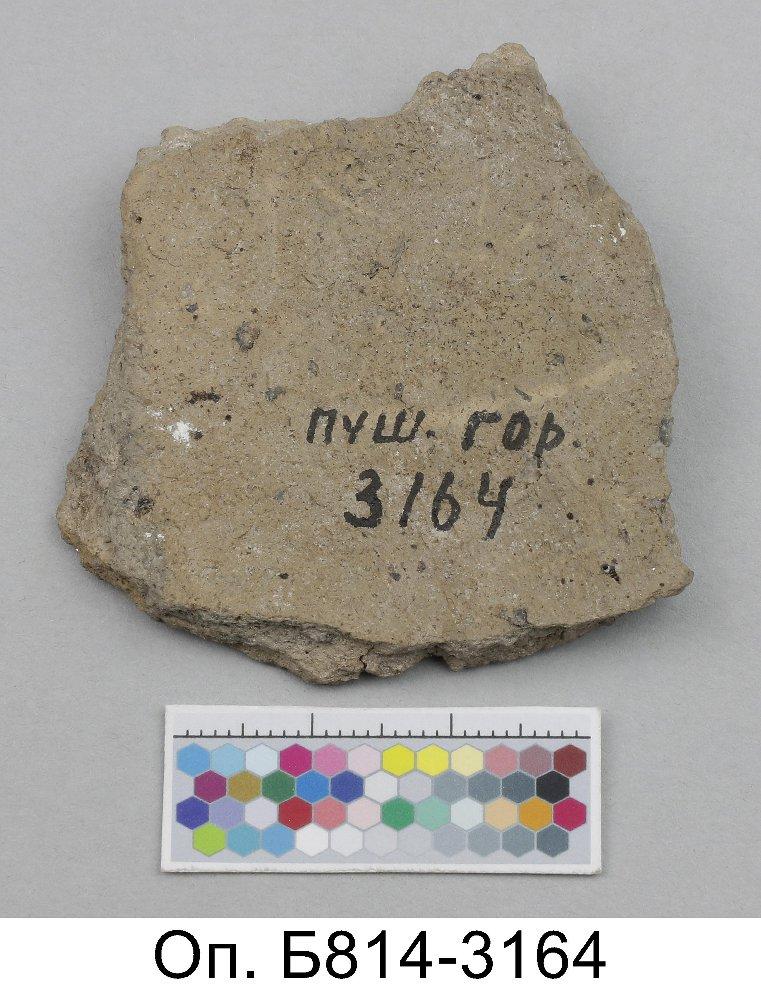 пуш. гор
3164
Оп. Б814-3164